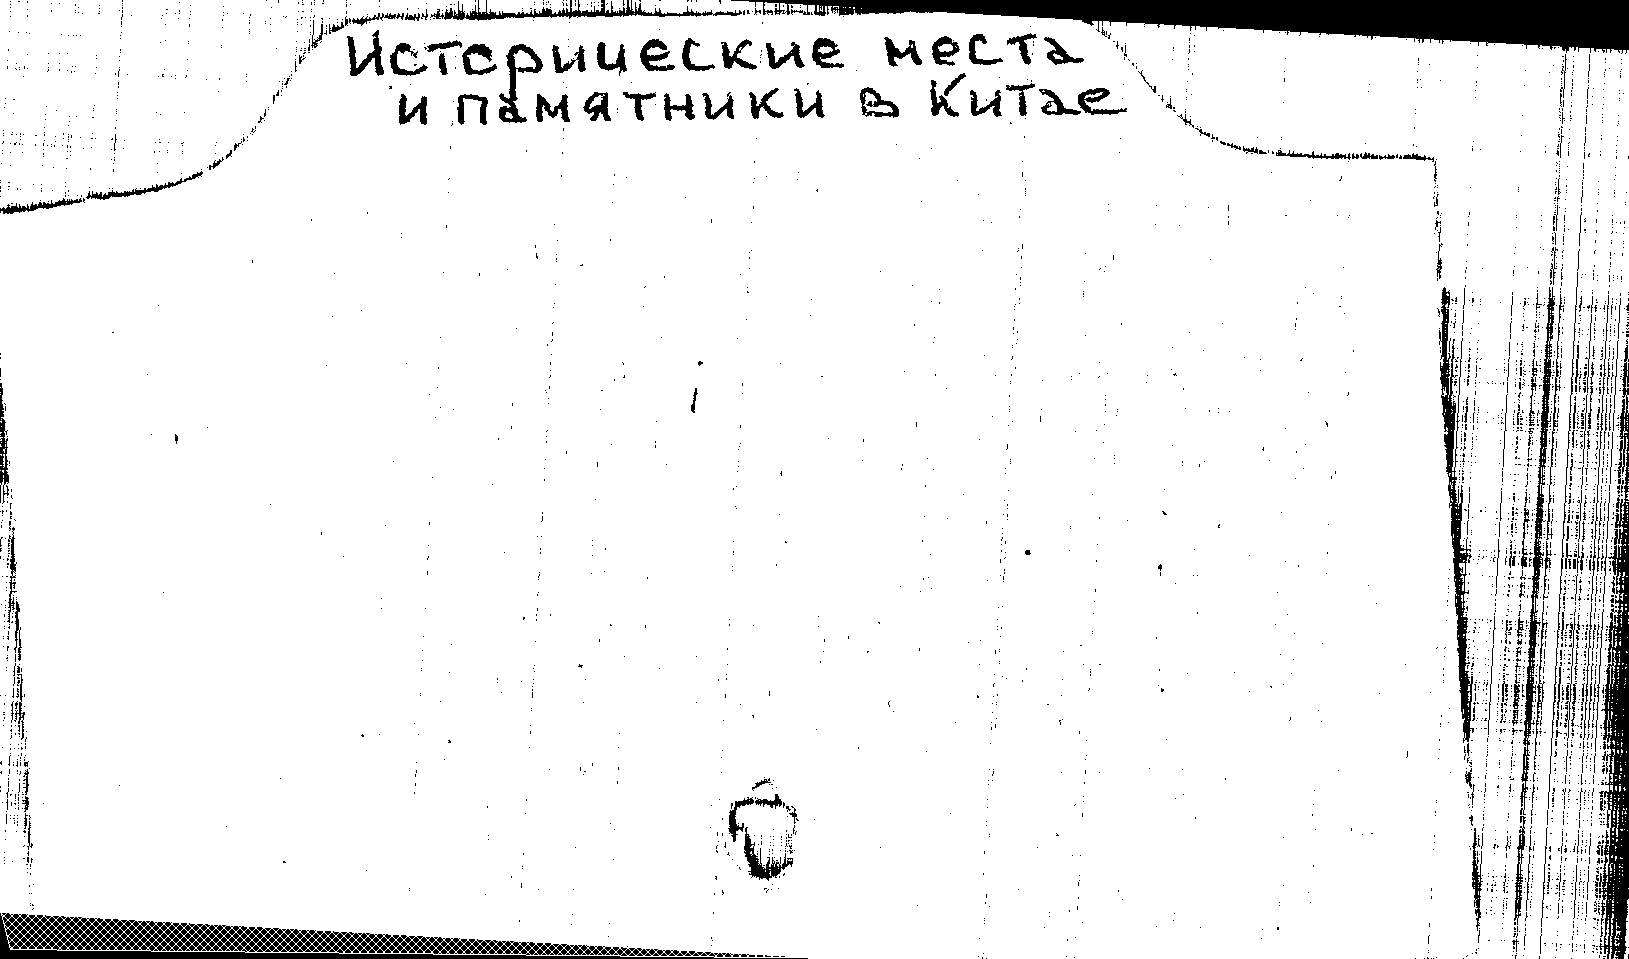 Исторические места
и памятники в Китае